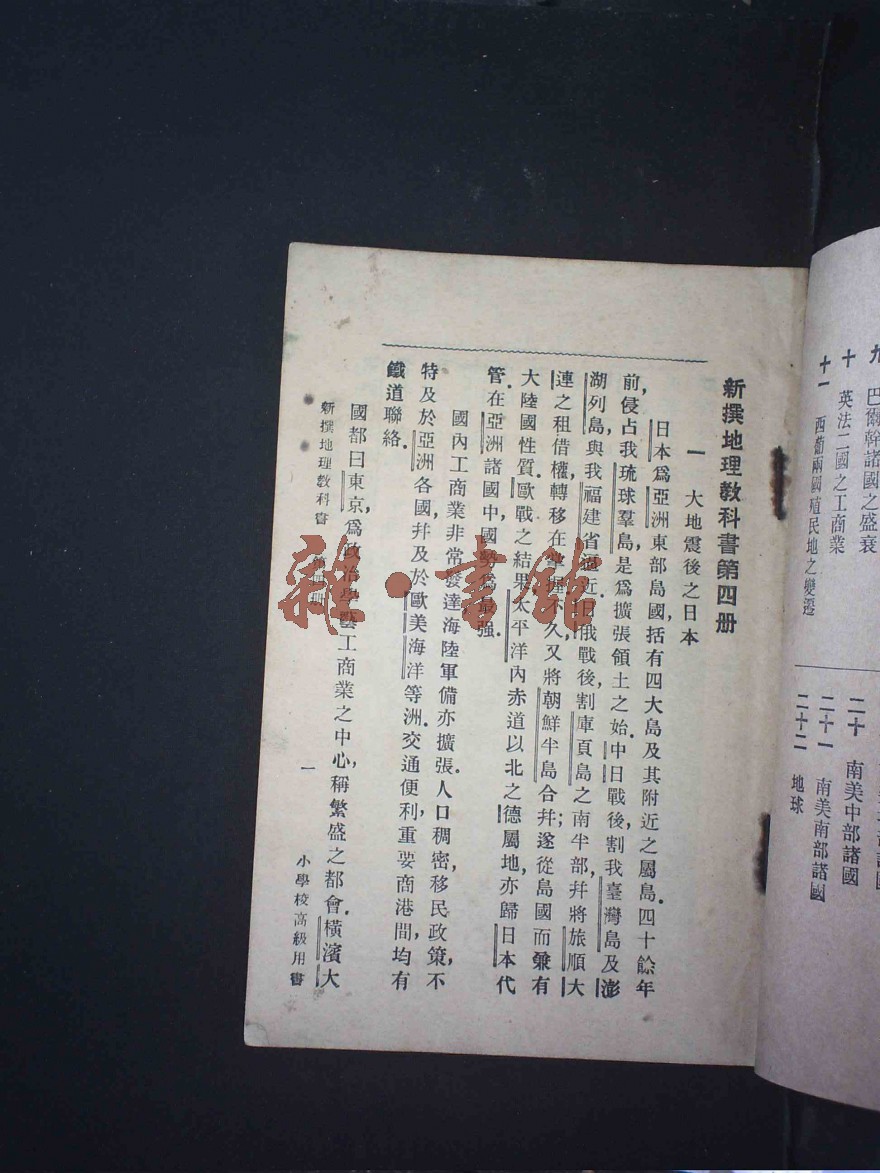 九 巴爾幹諸國之盛衰
十 英法二國之工商業
十一 西葡兩國殖民地之變遷
二十 南美中部諸國
二十一 南美南部諸國
二十二 地球
新撰地理教科書第四册
一 大地震後之日本
日本爲亞洲東部島國，括有四大島及其附近之屬島．四十餘年
前，侵占我琉球羣島，是爲擴張領土之始．中日戰後，割我臺灣島及澎
湖列島，與我福建省逼近．日俄戰後，割庫頁島之南半部，幷將旅順大
連之租借權，轉移在掌握．不久又將朝鮮半島合幷；遂從島國而兼有
大陸國性質．歐戰之結果，太平洋內赤道以北之德屬地，亦歸日本代
管．在亞洲諸國中，國勢爲最强．
國內工商業非常發達，海陸軍備亦擴張．人口稠密，移民政策，不
特及於亞洲各國，幷及於歐美海洋等洲．交通便利，重要商港間，均有
鐵道聯絡．
國都曰東京，爲政治學藝工商業之中心，稱繁盛之都會．橫濱大
新撰地理教科書 第四册 一 小學校高級用書
雜·書館